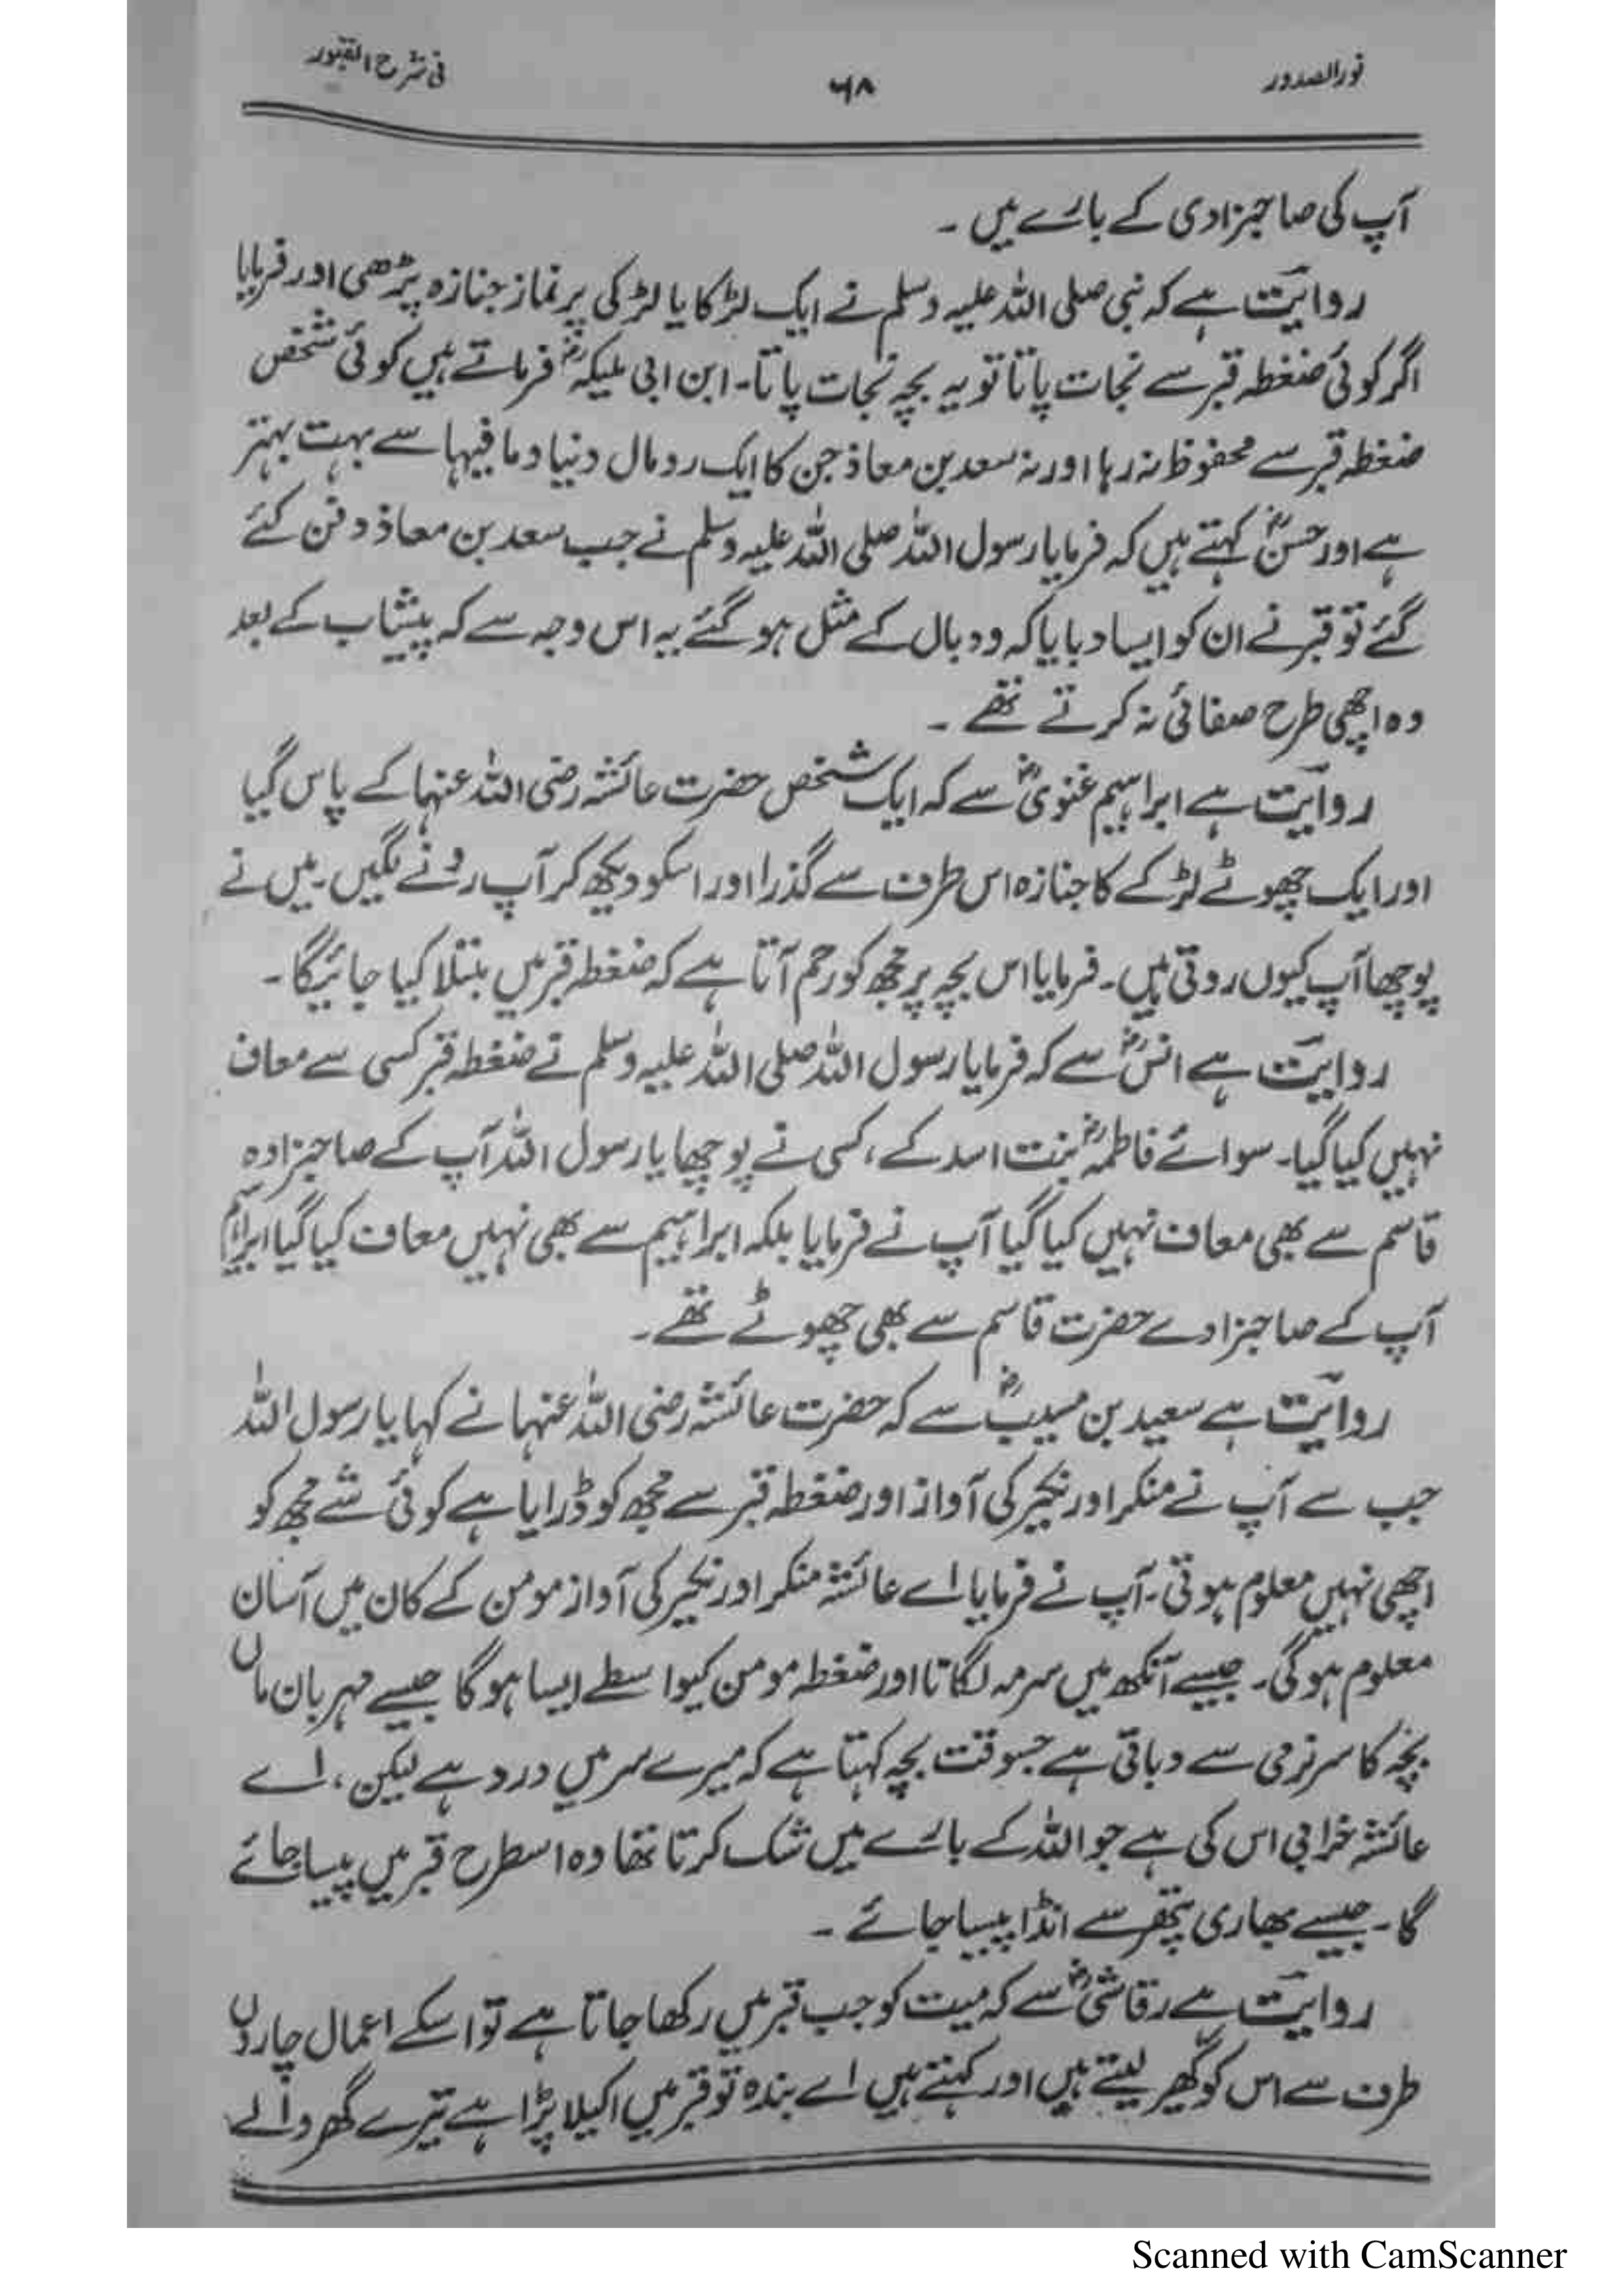 نورالصدور
۶۸
فی شرح القبور
آپ کی صاحبزادی کے بارے میں ۔
روایت ہے کہ نبی صلی اللہ علیہ وسلم نے ایک لڑکا یا لڑکی پر نماز جنازہ پڑھی اور فرمایا
اگر کوئی ضغطہ قبر سے نجات پاتا تو یہ بچہ نجات پاتا۔ ابن ابی ملیکہؓ فرماتے ہیں کوئی شخص
ضغطہ قبر سے محفوظ نہ رہا اور نہ سعد بن معاذ جن کا ایک رومال دنیا و مافیہا سے بہت بہتر
ہے اور حسنؓ کہتے ہیں کہ فرمایا رسول اللہ صلی اللہ علیہ وسلم نے جب سعد بن معاذ دفن کئے
گئے تو قبر نے ان کو ایسا دبایا کہ وہ بال کے مثل ہو گئے یہ اس وجہ سے کہ پیشاب کے بعد
وہ اچھی طرح صفائی نہ کرتے تھے ۔
روایت ہے ابراہیم غنویؓ سے کہ ایک شخص حضرت عائشہ رضی اللہ عنہا کے پاس گیا
اور ایک چھوٹے لڑکے کا جنازہ اس طرف سے گذرا اور اسکو دیکھ کر آپ رونے لگیں۔ میں نے
پوچھا آپ کیوں روتی ہیں۔ فرمایا اس بچہ پر مجھ کو رحم آتا ہے کہ ضغطہ قبر میں مبتلا کیا جائیگا ۔
روایت ہے انسؓ سے کہ فرمایا رسول اللہ صلی اللہ علیہ وسلم نے ضغطہ قبر کسی سے معاف
نہیں کیا گیا۔ سوائے فاطمہؓ بنت اسد کے، کسی نے پوچھا یا رسول اللہ آپ کے صاحبزادہ
قاسم سے بھی معاف نہیں کیا گیا آپ نے فرمایا بلکہ ابراہیم سے بھی نہیں معاف کیا گیا ابراہیم
آپ کے صاحبزادے حضرت قاسم سے بھی چھوٹے تھے ۔
روایت ہے سعید بن مسیبؓ سے کہ حضرت عائشہ رضی اللہ عنہا نے کہا یا رسول اللہ
جب سے آپ نے منکر اور نکیر کی آواز اور ضغطہ قبر سے مجھ کو ڈرایا ہے کوئی شے مجھ کو
اچھی نہیں معلوم ہوتی۔ آپ نے فرمایا اے عائشہ منکر اور نکیر کی آواز مومن کے کان میں آسان
معلوم ہوگی۔ جیسے آنکھ میں سرمہ لگاتا اور ضغطہ مومن کیواسطے ایسا ہوگا جیسے مہربان ماں
بچہ کا سر نرمی سے دباتی ہے جسوقت بچہ کہتا ہے کہ میرے سر میں درد ہے لیکن، اے
عائشہ خرابی اس کی ہے جو اللہ کے بارے میں شک کرتا تھا وہ اسطرح قبر میں پیسا جائے
گا۔ جیسے بھاری پتھر سے انڈا پیسا جائے ۔
روایت ہے رقاشیؓ سے کہ میت کو جب قبر میں رکھا جاتا ہے تو اسکے اعمال چاروں
طرف سے اس کو گھیر لیتے ہیں اور کہتے ہیں اے بندہ تو قبر میں اکیلا پڑا ہے تیرے گھر والے
Scanned with CamScanner